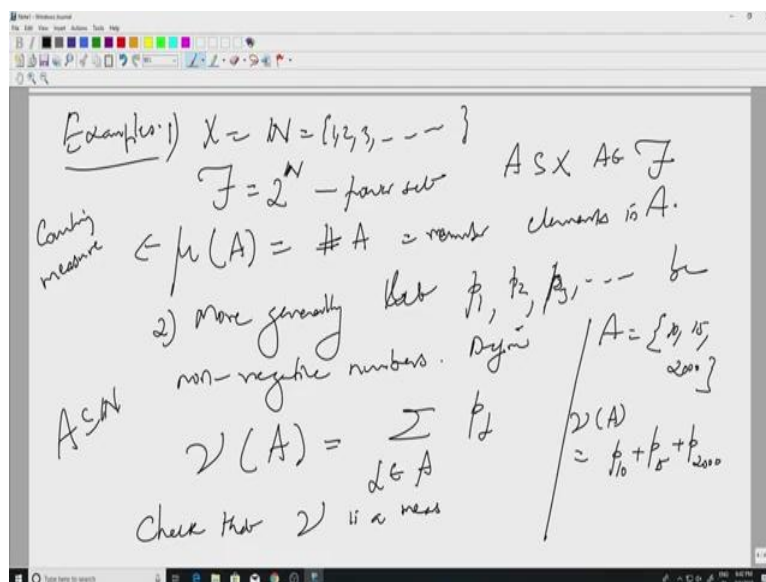 Note1 - Windows Journal
File Edit View Insert Actions Tools Help
Examples: 1) X = ℕ = {1, 2, 3, - - - - }
ℱ = 2^ℕ - power set A ⊆ X A ∈ ℱ
Counting measure ← μ(A) = # A = number elements in A.
2) More generally let p₁, p₂, p₃, - - - be
non-negative numbers. Define
A ⊆ ℕ
ν(A) = Σ_{α ∈ A} p_α
Check that ν is a meas
A = {10, 15,
2000}
ν(A)
= p₁₀ + p₁₅ + p₂₀₀₀
Type here to search